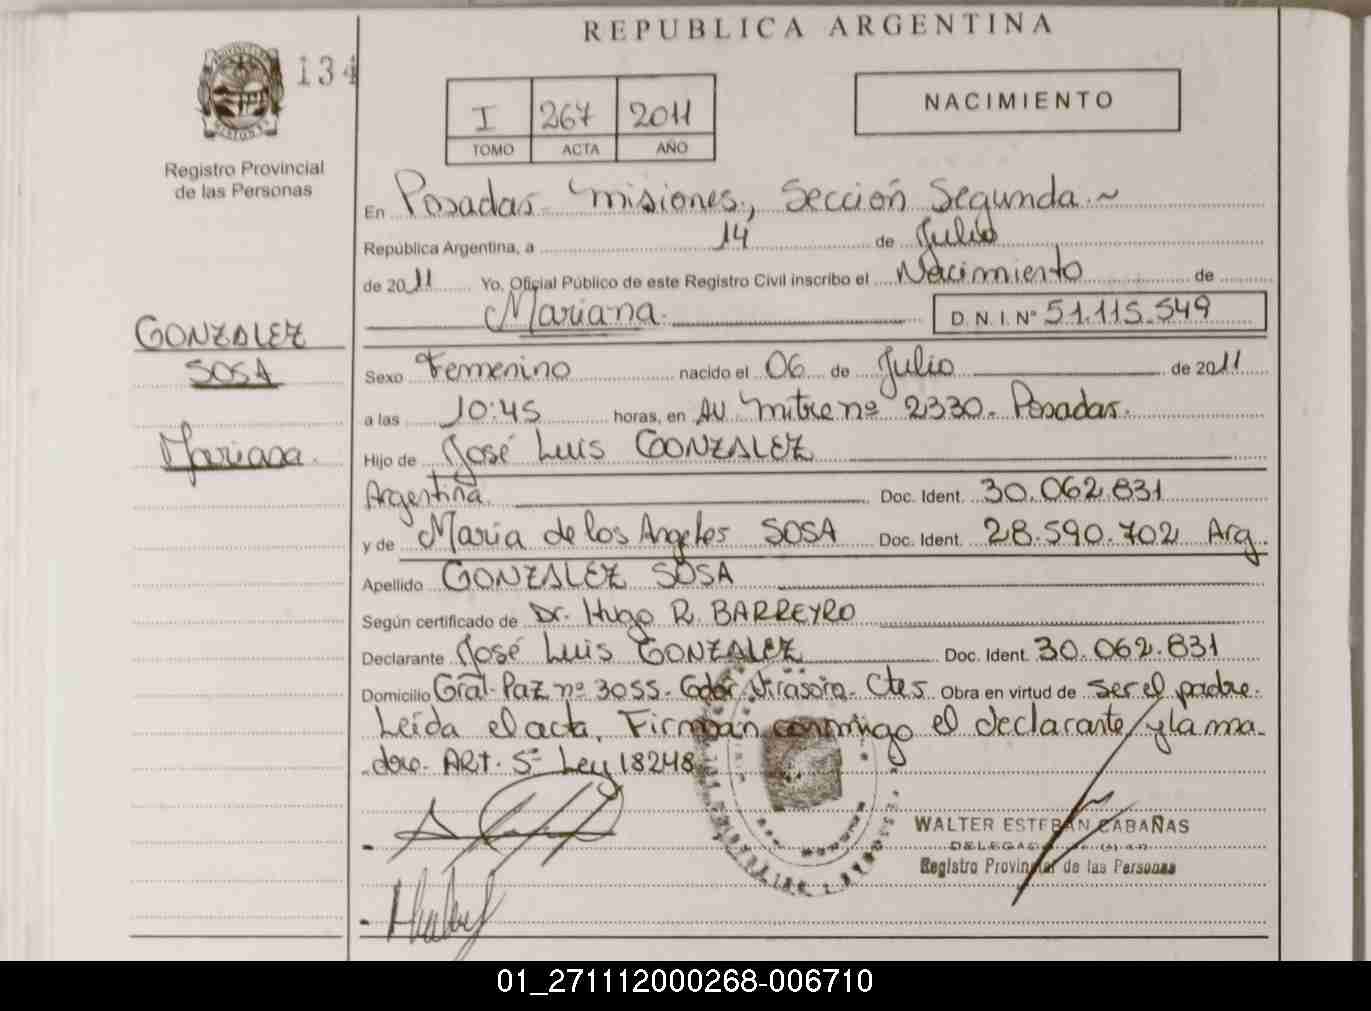 REPUBLICA ARGENTINA
134
I 267 2011
TOMO ACTA AÑO
NACIMIENTO
Registro Provincial
de las Personas
En Posadas Misiones, Sección Segunda
República Argentina, a 14 de Julio
de 2011 Yo, Oficial Público de este Registro Civil inscribo el Nacimiento de
Mariana. D.N.I. Nº 51.115.549
GONZALEZ
SOSA
Mariana.
Sexo Femenino nacido el 06 de Julio de 2011
a las 10:45 horas, en AV. Mitre nº 2330. Posadas.
Hijo de José Luis GONZALEZ
Argentina Doc. Ident. 30.062.831
y de María de los Angeles SOSA Doc. Ident. 28.590.702 Arg.
Apellido GONZALEZ SOSA
Según certificado de Dr. Hugo R. BARREYRO
Declarante José Luis GONZALEZ Doc. Ident. 30.062.831
Domicilio Gral. Paz nº 3055. Gdor. Virasoro. Ctes Obra en virtud de ser el padre.
Leída el acta, Firman conmigo el declarante y la ma-
dre. ART. 5º Ley 18248
WALTER ESTEBAN CABAÑAS
Registro Provincial de las Personas
01_271112000268-006710